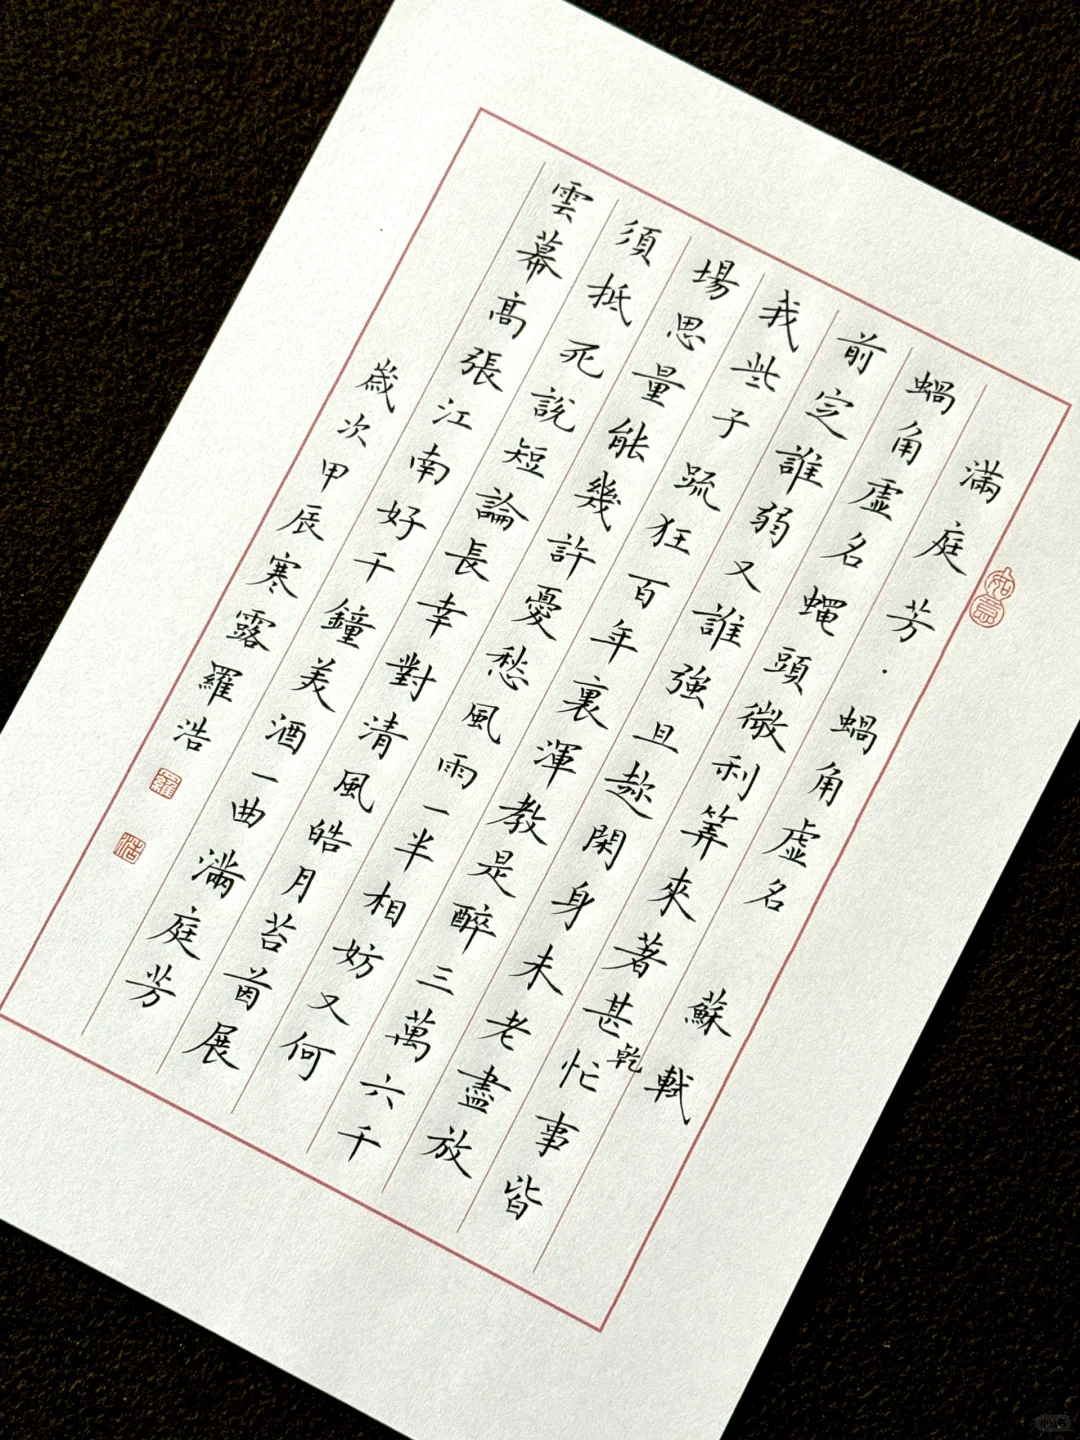 滿庭芳·蝸角虛名 蘇軾
如意
蝸角虛名蠅頭微利筭來著甚乾忙事皆
前定誰弱又誰強且趂閑身未老盡放
我些子疏狂百年裏渾教是醉三萬六千
場思量能幾許憂愁風雨一半相妨又何
須抵死說短論長幸對清風皓月苔茵展
雲幕高張江南好千鐘美酒一曲滿庭芳
歲次甲辰寒露羅浩
羅
浩